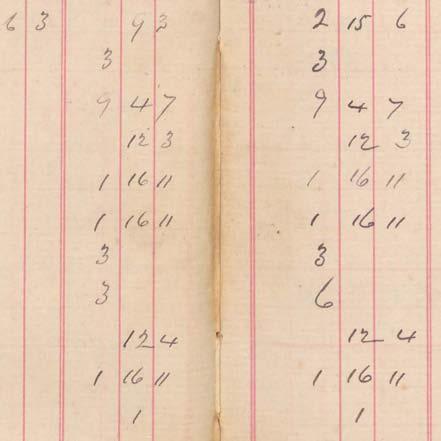 6 3 9 3 2 15 6
3 3
9 4 7 9 4 7
12 3 12 3
1 16 11 1 16 11
1 16 11 1 16 11
3 3
3 6
12 4 12 4
1 16 11 1 16 11
1 1